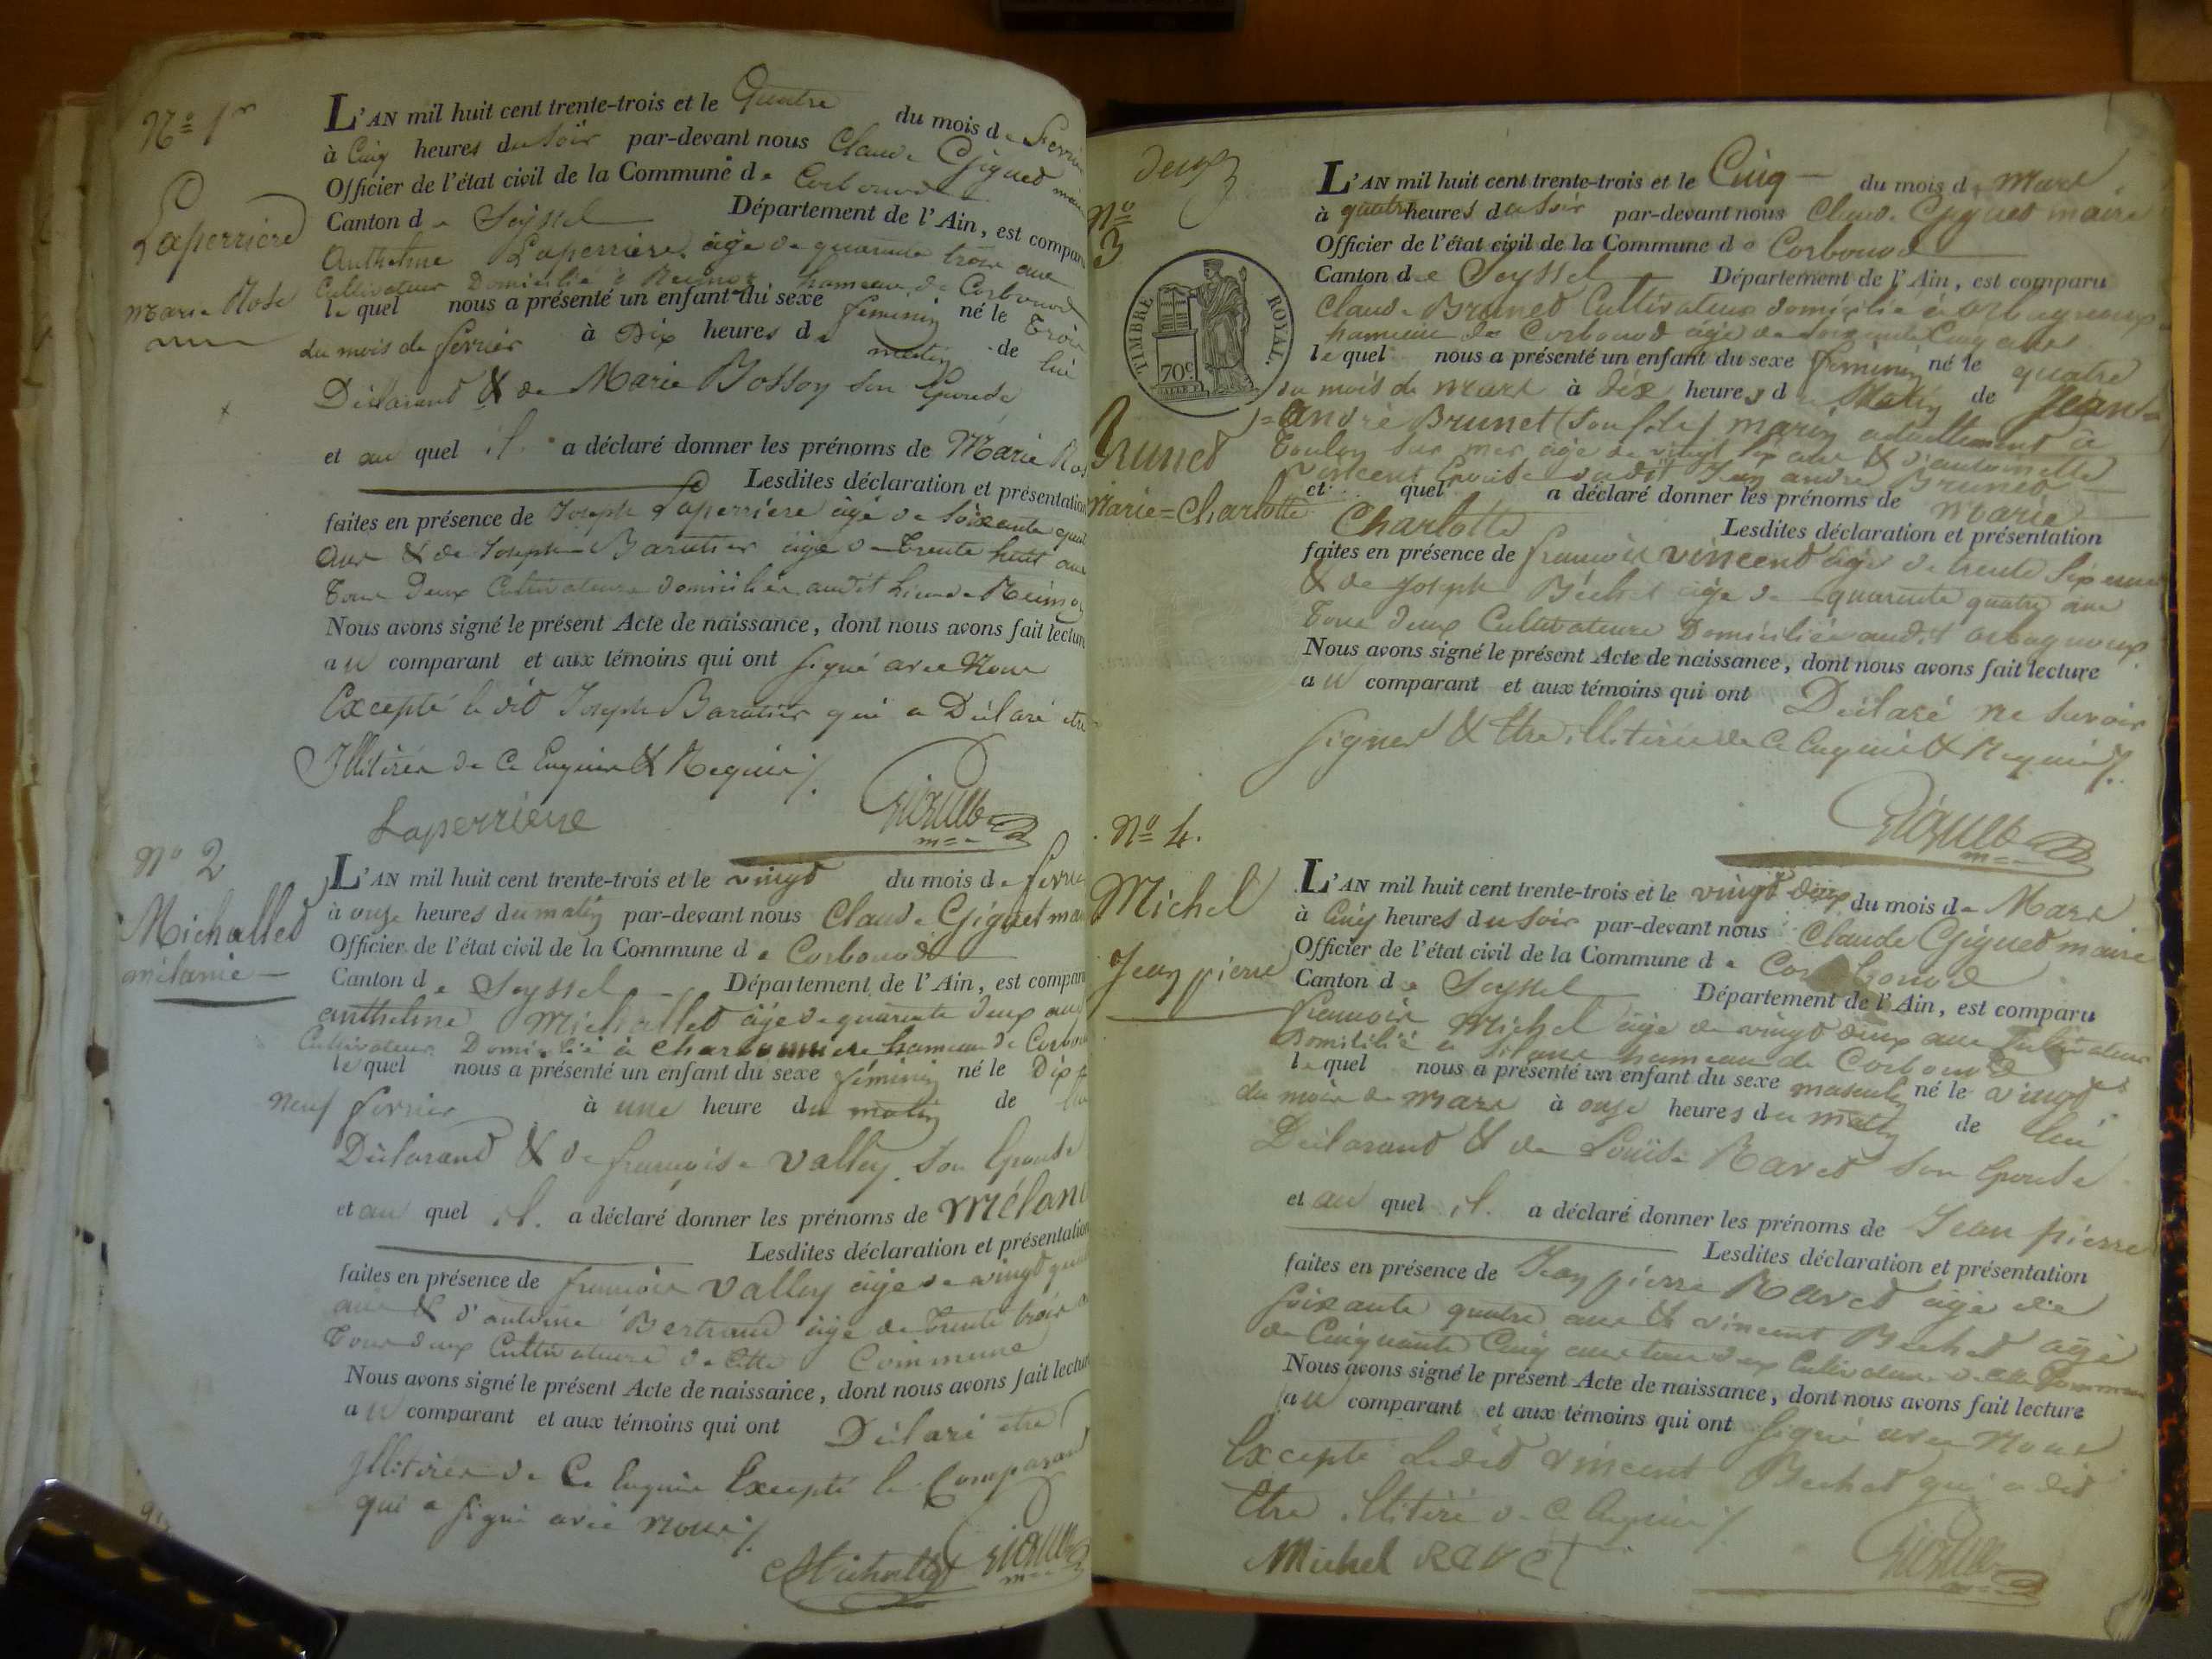 Nº 1er
Laperriere
Marie Rose
L'AN mil huit cent trente-trois et le Quatre du mois de
à Cinq heures du soir par-devant nous Claude Giguet
Officier de l'état civil de la Commune de Corbonod
Canton de Seyssel Département de l'Ain, est
Anthelme Laperriere âgé de quarante trois ans
Cultivateur Domicilié à hameau de Corbonod
lequel nous a présenté un enfant du sexe féminin né le Trois
du mois de février à Dix heures du matin de lui
Déclarant & de Marie Bosson son Epouse
et au quel il a déclaré donner les prénoms de Marie
Lesdites déclaration et présentation
faites en présence de Joseph Laperriere âgé de soixante
ans & de Joseph Baratier âgé de Trente huit ans
Tous Deux Cultivateurs domiciliés audit Lieu de
Nous avons signé le présent Acte de naissance, dont nous avons fait lecture
au comparant et aux témoins qui ont signé avec Nous
Excepté le dit Joseph Baratier qui a Déclaré être
Illitéré de Ce Enquis & Requis
Laperriere
Giguet
Nº 2
Michallet
mélanie
L'AN mil huit cent trente-trois et le vingt du mois de
à onze heures du matin par-devant nous Claude Giguet
Officier de l'état civil de la Commune de Corbonod
Canton de Seyssel Département de l'Ain, est
anthelme Michallet âgé de quarante deux ans
Cultivateur Domicilié à Charbonniere hameau de
lequel nous a présenté un enfant du sexe féminin né le Dix
neuf février à une heure du matin de
Déclarant & de françoise Valley son Epouse
et au quel il a déclaré donner les prénoms de
Lesdites déclaration et présentation
faites en présence de françois Valley âgé de vingt
ans & d'antoine Bertrand âgé de Trente trois
Tous deux Cultivateurs de Cette Commune
Nous avons signé le présent Acte de naissance, dont nous avons fait lecture
au comparant et aux témoins qui ont Déclaré être
Illitérés de Ce Enquis Excepté le Comparant
qui a signé avec nous
Michallet Giguet
deux
Nº 3
TIMBRE ROYAL.
70c
Brunet
Marie=Charlotte
L'AN mil huit cent trente-trois et le Cinq du mois de Mars
à quatre heures du soir par-devant nous Claude Giguet maire
Officier de l'état civil de la Commune de Corbonod
Canton de Seyssel Département de l'Ain, est comparu
Claude Brunet Cultivateur domicilié à orbagnoux
hameau de Corbonod âgé de soixante Cinq ans
lequel nous a présenté un enfant du sexe féminin né le quatre
du mois de mars à dix heures du Matin de Jean
=André Brunet (son fils) marin actuellement à
Toulon sur mer âgé de vingt six ans & d'antoinette
Vincent Epouse dudit Jean andré Brunet
et quel a déclaré donner les prénoms de Marie
Charlotte Lesdites déclaration et présentation
faites en présence de françois Vincent âgé de trente six ans
& de Joseph Béchet âgé de quarante quatre ans
Tous deux Cultivateurs Domiciliés audit orbagnoux
Nous avons signé le présent Acte de naissance, dont nous avons fait lecture
au comparant et aux témoins qui ont Déclaré ne savoir
signer & être illitérés de Ce Enquis & Requis
Giguet
Nº 4.
Michel
Jean pierre
L'AN mil huit cent trente-trois et le vingt deux du mois de Mars
à Cinq heures du soir par-devant nous Claude Giguet maire
Officier de l'état civil de la Commune de Corbonod
Canton de Seyssel Département de l'Ain, est comparu
françois Michel âgé de vingt deux ans Cultivateur
Domicilié à hameau de Corbonod
lequel nous a présenté un enfant du sexe masculin né le vingt
du mois de mars à onze heures du matin de lui
Déclarant & de Louise Ravet son Epouse
et au quel il a déclaré donner les prénoms de Jean pierre
Lesdites déclaration et présentation
faites en présence de Jean pierre Ravet âgé de
soixante quatre ans & vincent Bechet âgé
de Cinquante Cinq ans tous deux Cultivateurs de Cette Commune
Nous avons signé le présent Acte de naissance, dont nous avons fait lecture
au comparant et aux témoins qui ont signé avec Nous
Excepté Ledit vincent Bechet qui a dit
être illitéré de Ce Enquis
Michel Ravet Giguet